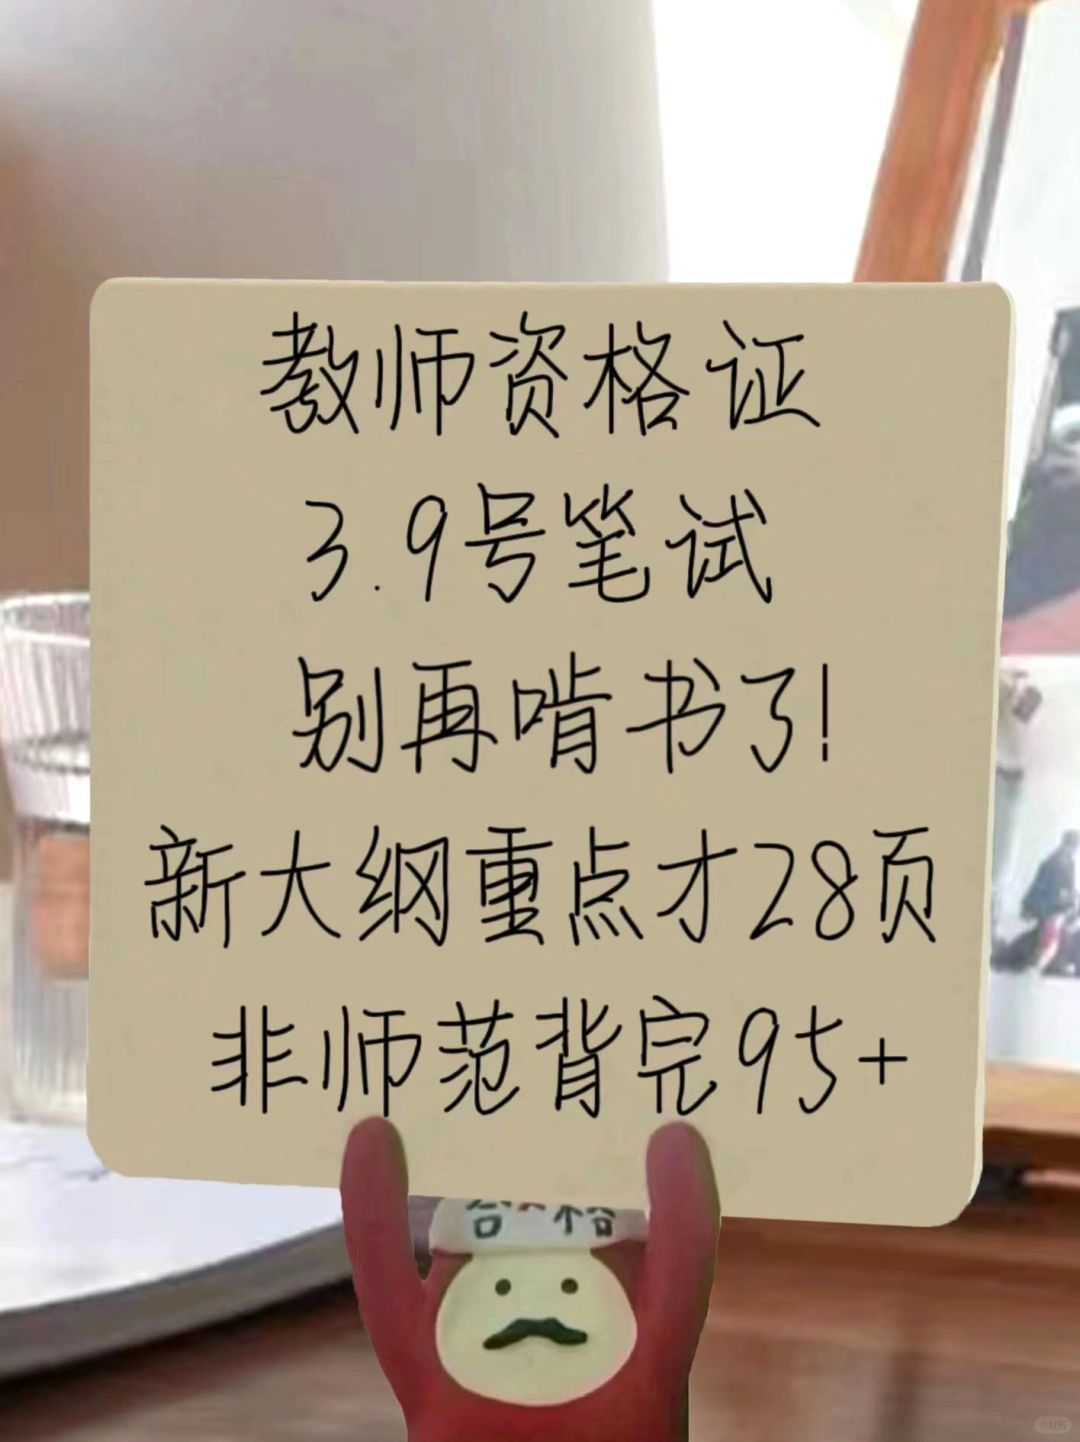 教师资格证
3.9号笔试
别再啃书了!
新大纲重点才28页
非师范背完95+
合格
小红书